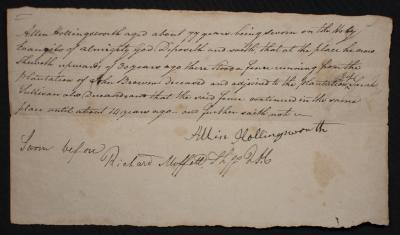 Allen Hollingsworth aged about 77 years being sworn on the Holy
Evangels of almighty God Deposeth and saith, that at the place he now
sheweth upwards of 30 years ago there stood a fence running from the
plantation of John Brown deceased and adjoined to the plantation of
Sullivan also Deceased and that the said fence continued in the same
place until about 14 years ago and further saith not
Allen Hollingsworth
Sworn before
Richard Moffett